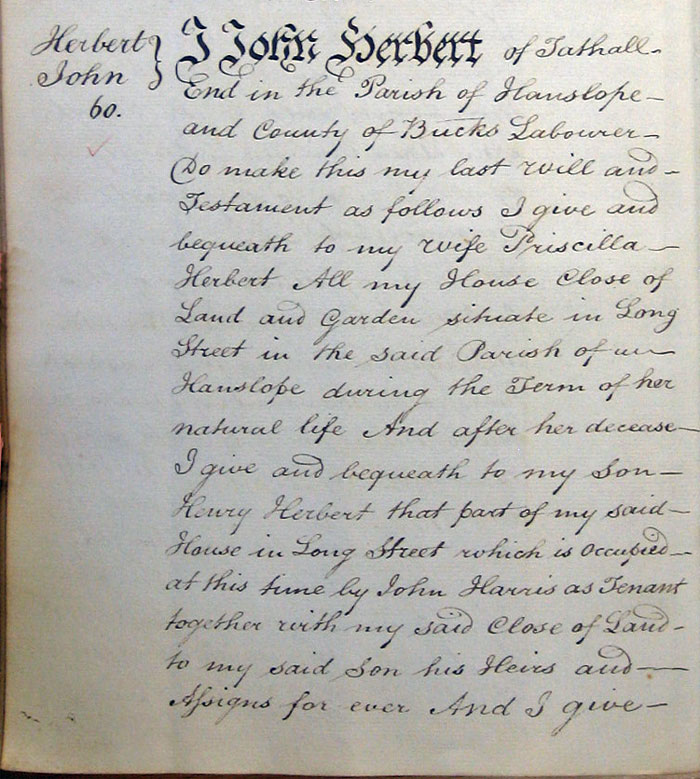 Herbert
John
60.
I John Herbert of Tathall
End in the Parish of Hanslope
and County of Bucks Labourer
Do make this my last will and
Testament as follows I give and
bequeath to my wife Priscilla
Herbert All my House Close of
Land and Garden situate in Long
Street in the said Parish of
Hanslope during the Term of her
natural life And after her decease
I give and bequeath to my Son
Henry Herbert that part of my said
House in Long Street which is occupied
at this time by John Harris as Tenant
together with my said Close of Land
to my said Son his Heirs and
Assigns for ever And I give